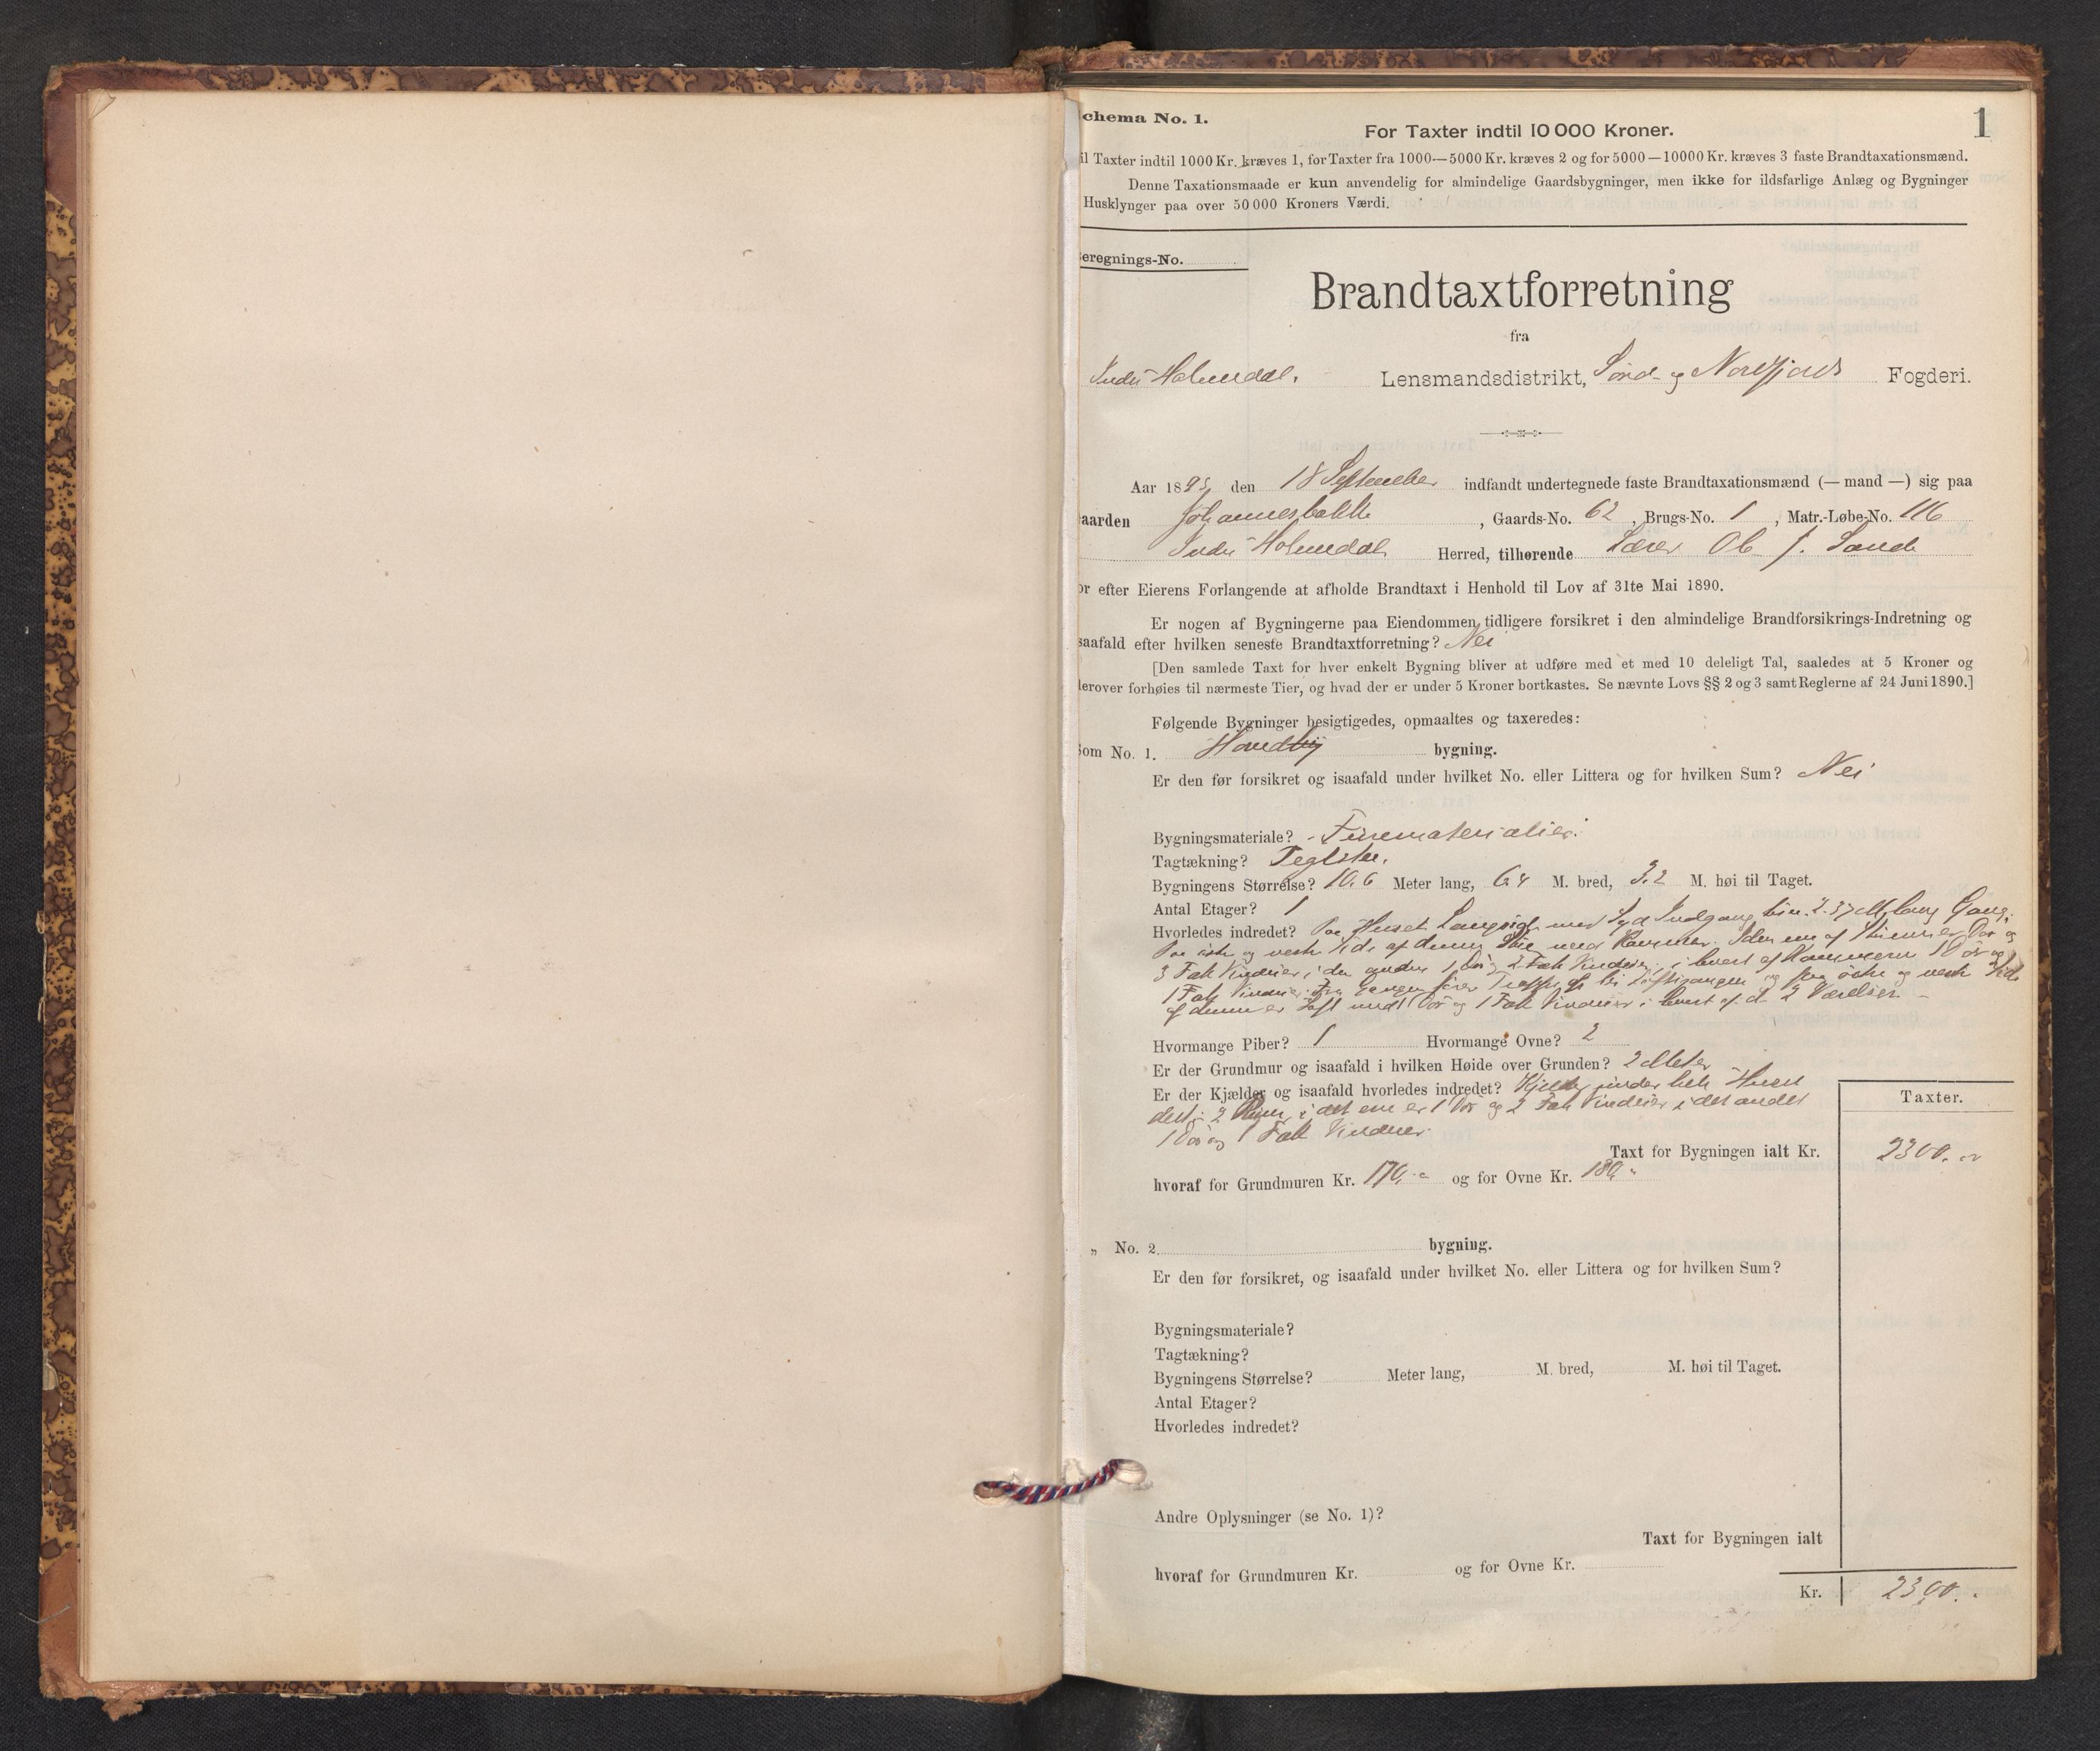 chema No. 1.
1
For Taxter indtil 10 000 Kroner.
il Taxter indtil 1000 Kr. kræves 1, for Taxter fra 1000—5000 Kr. kræves 2 og for 5000—10000 Kr. kræves 3 faste Brandtaxationsmænd.
Denne Taxationsmaade er kun anvendelig for almindelige Gaardsbygninger, men ikke for ildsfarlige Anlæg og Bygninger
Husklynger paa over 50 000 Kroners Værdi.
eregnings-No.
Brandtaxtforretning
fra
Indre Holmedal. Lensmandsdistrikt, Sönd- og Nordfjords Fogderi.
Aar 1895 den 18 September indfandt undertegnede faste Brandtaxationsmænd (— mand —) sig paa
aarden Johannesbakke, Gaards-No. 62, Brugs-No. 1, Matr.-Løbe-No. 116
Indre Holmedal Herred, tilhørende Lærer Ol. J. Sande
or efter Eierens Forlangende at afholde Brandtaxt i Henhold til Lov af 31te Mai 1890.
Er nogen af Bygningerne paa Eiendommen tidligere forsikret i den almindelige Brandforsikrings-Indretning og
saafald efter hvilken seneste Brandtaxtforretning? Nei
[Den samlede Taxt for hver enkelt Bygning bliver at udføre med et med 10 deleligt Tal, saaledes at 5 Kroner og
derover forhøies til nærmeste Tier, og hvad der er under 5 Kroner bortkastes. Se nævnte Lovs §§ 2 og 3 samt Reglerne af 24 Juni 1890.]
Følgende Bygninger besigtigedes, opmaaltes og taxeredes:
Som No. 1. Hovedbyg bygning.
Er den før forsikret og isaafald under hvilket No. eller Littera og for hvilken Sum? Nei
Bygningsmateriale? Furematerialier.
Tagtækning? Teglsten.
Bygningens Størrelse? 10.6 Meter lang, 6.4 M. bred, 3.2 M. høi til Taget.
Antal Etager? 1
Hvorledes indredet? Paa Husets Langside mod Syd Indgang til en 2.37 M. lang Gang.
Paa östre og vestre Side af denne Stue med Kammer. I den ene af Stuerne er 1 Dör og
3 Fak Vinduer i den anden 1 Dör og 2 Fak Vinduer, i hvert af Kammerne 1 Dör og
1 Fak Vinduer. Fra Gangen förer Trappe op til Loftsgangen og paa östre og vestre Side
af denne er Loft med 1 Dör og 1 Fak Vinduer i hvert af de 2 Værelser.
Hvormange Piber? 1 Hvormange Ovne? 2
Er der Grundmur og isaafald i hvilken Høide over Grunden? 2 Meter
Er der Kjælder og isaafald hvorledes indredet? Kjelder under hele Huset
delt i 2 Rum, i det ene er 1 Dör og 2 Fak Vinduer i det andet
1 Dör og 1 Fak Vinduer.
Taxter.
Taxt for Bygningen ialt Kr. 2300.
hvoraf for Grundmuren Kr. 170, og for Ovne Kr. 180,
„ No. 2 bygning.
Er den før forsikret, og isaafald under hvilket No. eller Littera og for hvilken Sum?
Bygningsmateriale?
Tagtækning?
Bygningens Størrelse? Meter lang, M. bred, M. høi til Taget.
Antal Etager?
Hvorledes indredet?
Andre Oplysninger (se No. 1)?
Taxt for Bygningen ialt
hvoraf for Grundmuren Kr. og for Ovne Kr.
Kr. 2300.